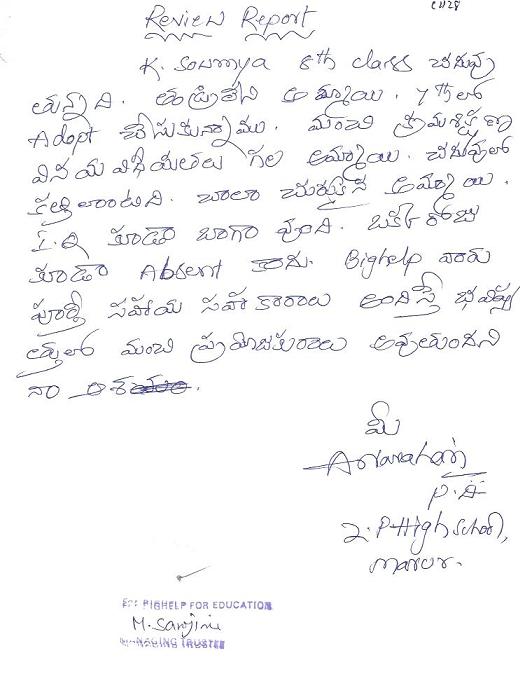 C1128
Review Report
K. Sowmya 8th class చదువు
తున్నది. తండ్రిలేని అమ్మాయి. 7th లో
Adopt చేసుకున్నాము. మంచి క్రమశిక్షణ
వినయ విధేయతలు గల అమ్మాయి. చదువులో
కత్తిలాంటిది. చాలా చురుకైన అమ్మాయి.
I.Q కూడా బాగా వుంది. ఒక్క రోజు
కూడా Absent కాదు. Bighelp వారు
పూర్తి సహాయ సహకారాలు అందిస్తే భవిష్య
త్తులో మంచి ప్రయోజకురాలు అవుతుందని
నా ఆశ
మీ
P.A
Z.P High School,
Marur.
For BIGHELP FOR EDUCATION
M. Sarojini
MANAGING TRUSTEE